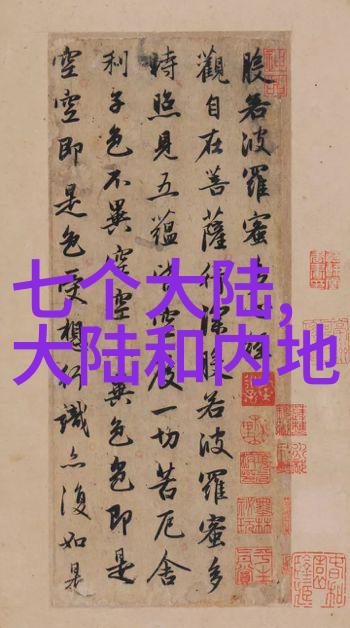 般若波羅蜜多心經
觀自在菩薩行深般若波羅蜜多
時照見五蘊皆空度一切苦厄舍
利子色不異空空不異色色即是
空空即是色受想行識亦復如是
七个大陆,
大陆和内地